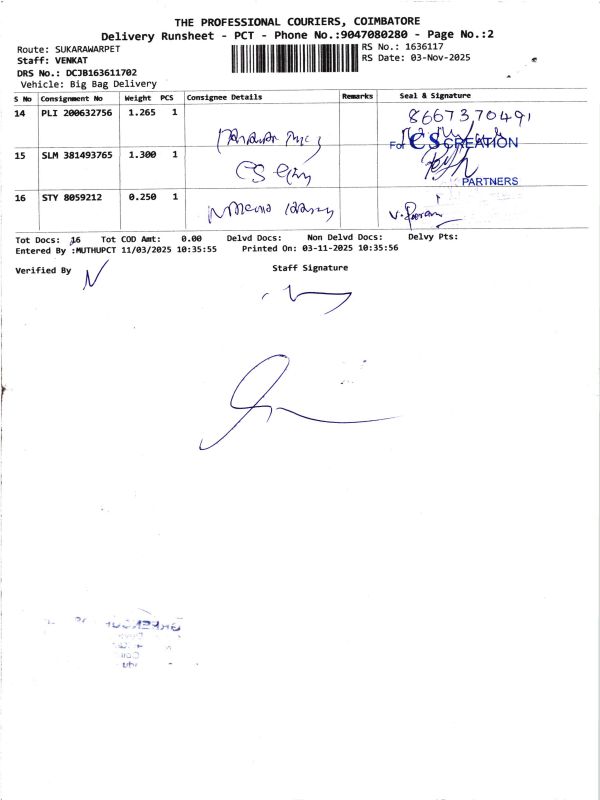 THE PROFESSIONAL COURIERS, COIMBATORE
Delivery Runsheet - PCT - Phone No.:9047080280 - Page No.:2
Route: SUKARAWARPET
RS No.: 1636117
Staff: VENKAT
RS Date: 03-Nov-2025
DRS No.: DCJB163611702
Vehicle: Big Bag Delivery
S No Consignment No Weight PCS Consignee Details Remarks Seal & Signature
14 PLI 200632756 1.265 1 8667370491
For CS CREATION
15 SLM 381493765 1.300 1 CS
PARTNERS
16 STY 8059212 0.250 1
Tot Docs: 16 Tot COD Amt: 0.00 Delvd Docs: Non Delvd Docs: Delvy Pts:
Entered By :MUTHUPCT 11/03/2025 10:35:55 Printed On: 03-11-2025 10:35:56
Verified By
Staff Signature